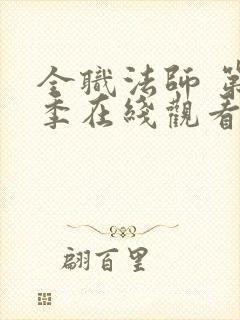 全職法師 第
季在綫觀看
翩百里